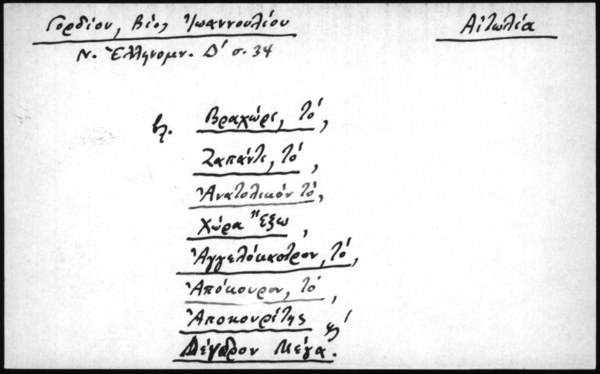 Γορδίου, Βίος Ἰωαννουλίου Αἰτωλία
Ν. Ἑλληνομν. Δ' σ. 34
βλ. Βραχώρι, τό,
Ζαπάντι, τό,
Ἀνατολικόν τό,
Χώρα "Εξω,
Ἀγγελόκαστρον, τό,
Ἀπόκουρον, τό,
Ἀποκουρίτης
Μέγα.